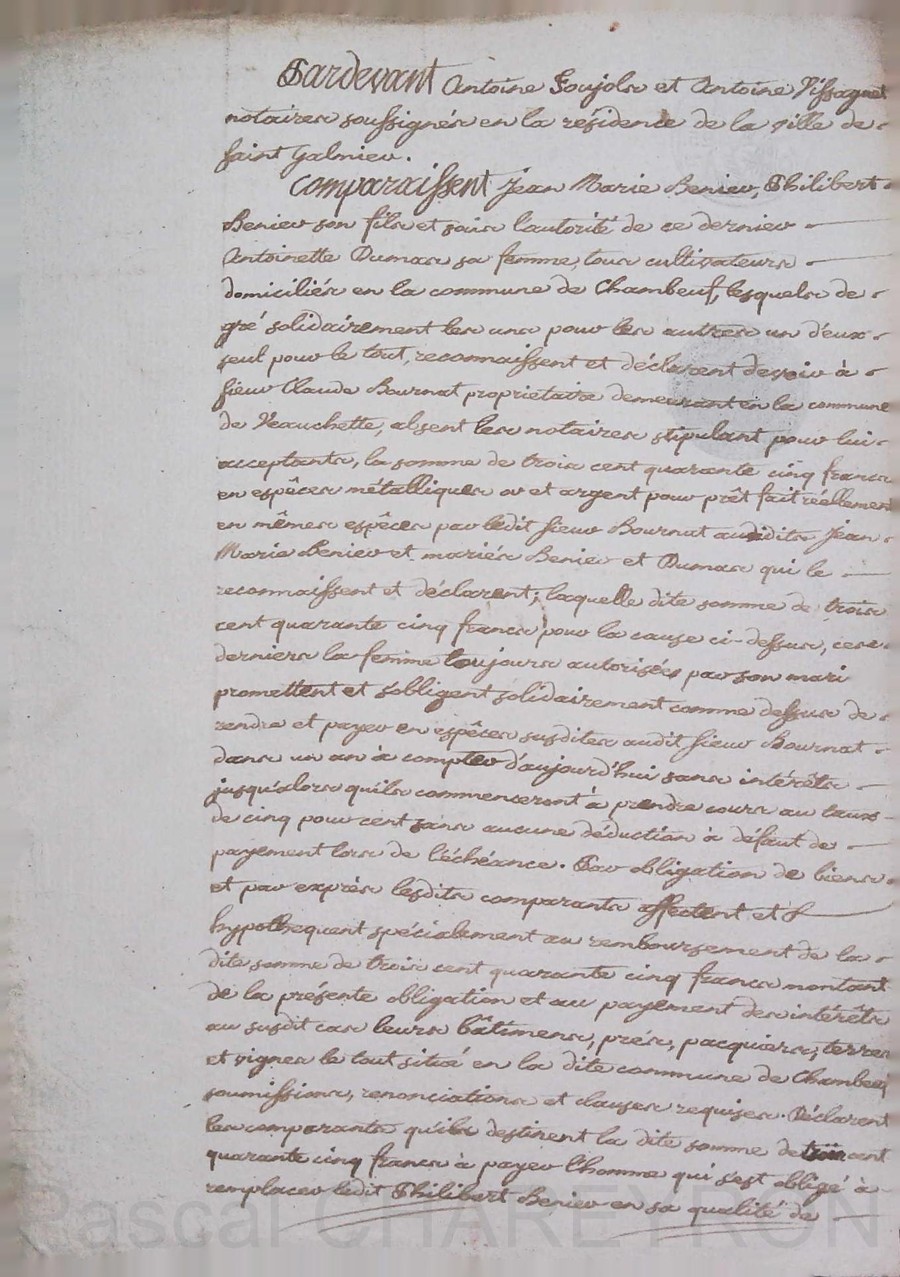 Pardevant Antoine Poujols et Antoine Vissaguet
notaires soussignés en la résidence de la ville de
saint Galmier.
Comparaissent Jean Marie Benier, Philibert
Benier son fils et sous l'autorité de ce dernier
Antoinette Dumas sa femme, tous cultivateurs
domiciliés en la commune de Chambeuf, lesquels de
gré solidairement les uns pour les autres un d'eux
seul pour le tout, reconnaissent et déclarent devoir à
sieur Claude Bournat propriétaire demeurant en la commune
de Veauchette, absent les notaires stipulant pour lui
acceptants, la somme de trois cent quarante cinq francs
en espêces métalliques or et argent pour prêt fait réellement
en mêmes espêces par ledit sieur Bournat audits Jean
Marie Benier et mariés Benier et Dumas qui le
reconnaissent et déclarent; laquelle dite somme de trois
cent quarante cinq francs pour la cause ci-dessus, ces
derniers la femme toujours autorisée par son mari
promettent et s'obligent solidairement comme dessus de
rendre et payer en espêces susdites audit sieur Bournat
dans un an à compter d'aujourd'hui sans intérêts
jusqu'alors qu'ils commenceront à prendre cours au taux
de cinq pour cent sans aucune déduction à défaut de
payement lors de l'échéance. Par obligation de biens
et par exprès lesdits comparants affectent et
hypothequent spécialement au remboursement de la
dite somme de trois cent quarante cinq francs montant
de la présente obligation et au payement des intérêts
au susdit cas leurs bâtimens, prés, pacquiers, terres
et vignes le tout situé en la dite commune de Chambeuf
soumissions, renonciations et clauses requises. Déclarent
les comparants qu'ils destinent la dite somme de trois cent
quarante cinq francs à payer l'homme qui s'est obligé à
remplacer ledit Philibert Benier en sa qualité de
Pascal CHAREYRON